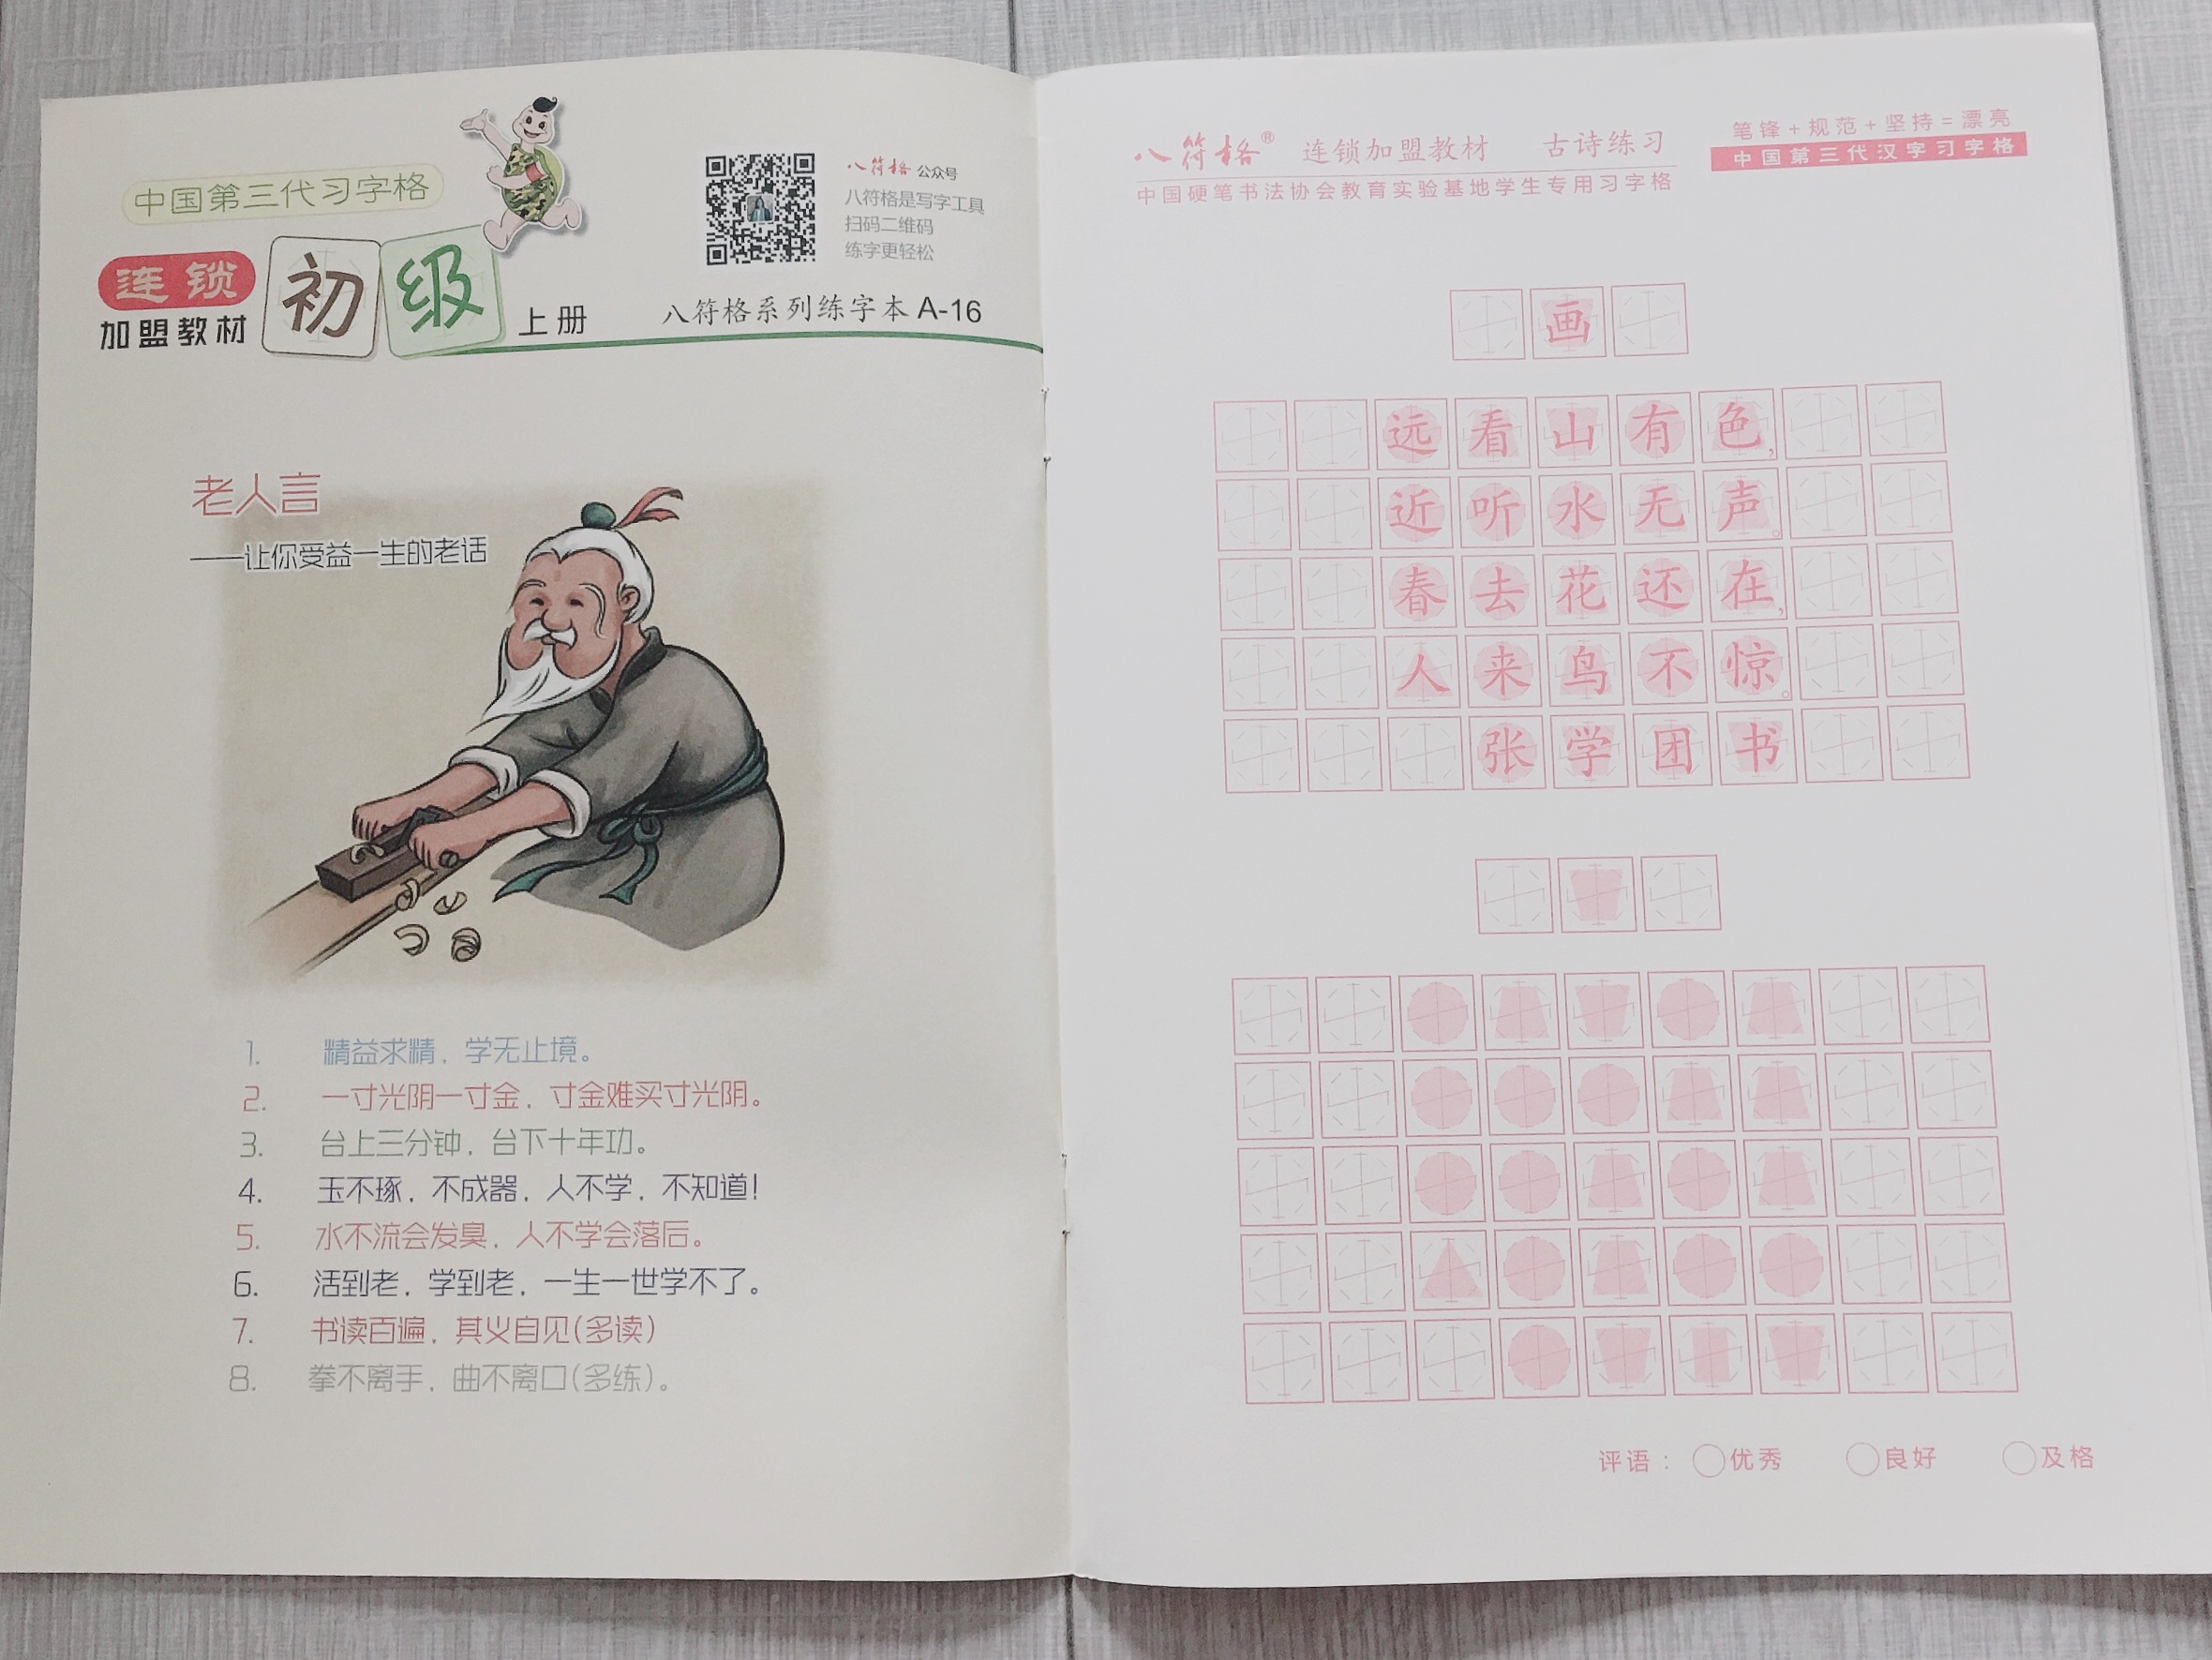 中国第三代习字格
连锁
加盟教材
初级
上册
八符格 公众号
八符格是写字工具
扫码二维码
练字更轻松
八符格系列练字本 A-16
老人言
——让你受益一生的老话
1. 精益求精，学无止境。
2. 一寸光阴一寸金，寸金难买寸光阴。
3. 台上三分钟，台下十年功。
4. 玉不琢，不成器，人不学，不知道！
5. 水不流会发臭，人不学会落后。
6. 活到老，学到老，一生一世学不了。
7. 书读百遍，其义自见（多读）
8. 拳不离手，曲不离口（多练）。
八符格® 连锁加盟教材 古诗练习
中国硬笔书法协会教育实验基地学生专用习字格
笔锋+规范+坚持=漂亮
中国第三代汉字习字格
画
远看山有色，
近听水无声。
春去花还在，
人来鸟不惊。
张学团书
评语： 优秀 良好 及格